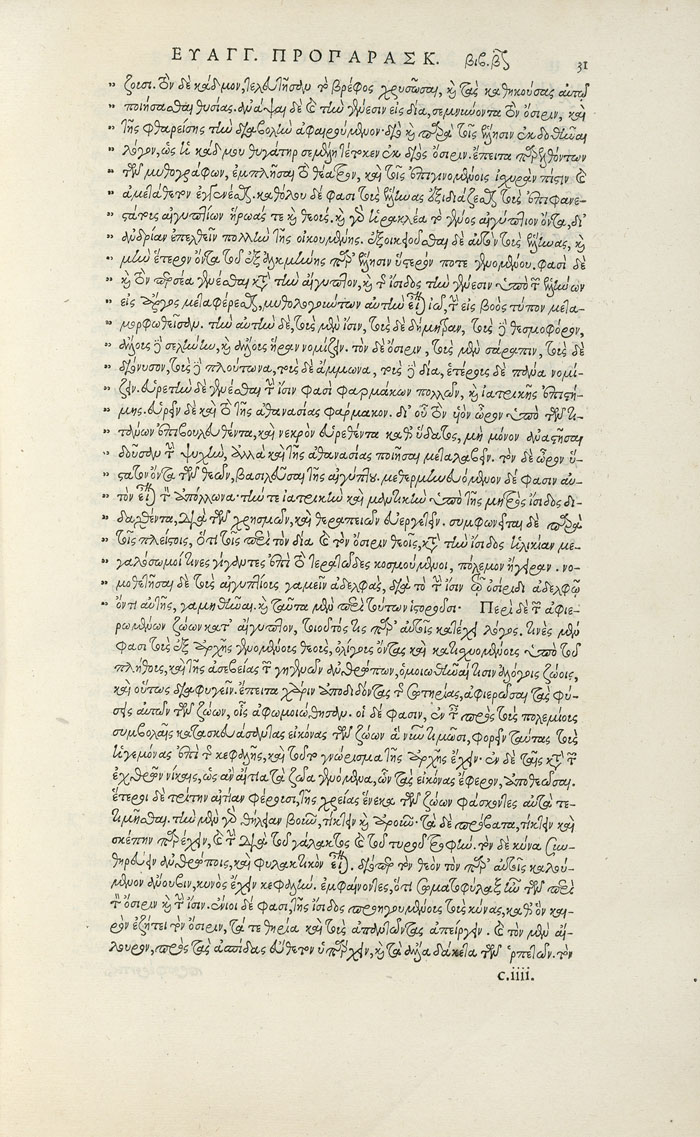 ΕΥΑΓΓ. ΠΡΟΠΑΡΑΣΚ. βιβ. β 31
” ζοισι. τὸν δὲ κάδμον, τελευτῆσαν τὸ βρέφος χρυσῶσαι, καὶ τὰς καθηκούσας αὐτῷ
” ποιήσασθαι θυσίας. ἀνάψαι δὲ καὶ τὴν γένεσιν εἰς δία, σεμνύνοντα τὸν ὄσιριν, καὶ
” τῆς φθαρείσης τὴν διαβολὴν ἀφαιρούμενον· διὸ καὶ παρὰ τοῖς ἕλλησιν ἐκδοθῆναι
” λόγον, ὡς ἡ κάδμου θυγάτηρ σεμέλη τέτοκεν ἐκ διὸς ὄσιριν. ἔπειτα προσελθόντων
” τῶν μυθογράφων, ἐμπλῆσαι τὸ θέατρον, καὶ τοῖς ἐπιγινομένοις ἰσχυρὰν πίστιν καὶ
” ἀμετάθετον ἐγγενέσθαι. καθόλου δέ φασι τοὺς ἕλληνας ἐξιδιάζεσθαι τοὺς ἐπιφανε-
” στάτους αἰγυπτίων ἥρωάς τε καὶ θεούς. καὶ γὰρ ἡρακλέα τὸ γένος αἰγύπτιον ὄντα, δι’
” ἀνδρίαν ἐπελθεῖν πολλὴν τῆς οἰκουμένης. ἐξοικειοῦσθαι δὲ αὐτὸν τοὺς ἕλληνας, καὶ
” μὴν ἕτερον ὄντα τοῦ ἐξ ἀλκμήνης παρ’ ἕλλησιν ὕστερόν ποτε γενομένου. φασὶ δὲ
” καὶ τὸν περσέα γενέσθαι κατὰ τὴν αἴγυπτον, καὶ τῆς ἴσιδος τὴν γένεσιν ὑπὸ τῶν ἑλλήνων
” εἰς ἄργος μεταφέρεσθαι, μυθολογούντων αὐτὴν εἶναι ἰὼ, τὴν εἰς βοὸς τύπον μετα-
” μορφωθεῖσαν. τὴν αὐτὴν δὲ, τοὺς μὲν ἴσιν, τοὺς δὲ δήμητραν, τοὺς δὲ θεσμοφόρον,
” ἄλλους δὲ σελήνην, καὶ ἄλλους ἥραν νομίζειν. τὸν δὲ ὄσιριν, τοὺς μὲν σάραπιν, τοὺς δὲ
” διόνυσον, τοὺς δὲ πλούτωνα, τοὺς δὲ ἄμμωνα, τοὺς δὲ δία, ἑτέρους δὲ πᾶνα νομί-
” ζειν. εὑρετὴν δὲ γενέσθαι τὴν ἴσιν φασὶ φαρμάκων πολλῶν, καὶ ἰατρικῆς ἐπιστή-
” μης. εὑρεῖν δὲ καὶ τὸ τῆς ἀθανασίας φάρμακον. δι’ οὗ τὸν υἱὸν ὧρον ὑπὸ τῶν τι-
” τάνων ἐπιβουλευθέντα, καὶ νεκρὸν εὑρεθέντα καθ’ ὕδατος, μὴ μόνον ἀναστῆσαι
” δοῦσαν τὴν ψυχὴν, ἀλλὰ καὶ τῆς ἀθανασίας ποιῆσαι μεταλαβεῖν. τὸν δὲ ὧρον ὕ-
” στατον ὄντα τῶν θεῶν, βασιλεῦσαι τῆς αἰγύπτου. μεθερμηνευόμενον δέ φασιν αὐ-
” τὸν εἶναι τὸν ἀπόλλωνα· τήν τε ἰατρικὴν καὶ μαντικὴν ὑπὸ τῆς μητρὸς ἴσιδος δι-
” δαχθέντα, διὰ τῶν χρησμῶν, καὶ θεραπειῶν εὐεργετεῖν. συμφωνεῖται δὲ παρὰ
” τοῖς πλείστοις, ὅτι τοῖς περὶ τὸν δία καὶ τὸν ὄσιριν θεοῖς, κατὰ τὴν ἴσιδος ἡλικίαν με-
” γαλόσωμοί τινες γίγαντες ἐπὶ τὸ τερατῶδες κοσμούμενοι, πόλεμον ἤγειραν. νο-
” μοθετῆσαι δὲ τοὺς αἰγυπτίους γαμεῖν ἀδελφὰς, διὰ τὸ τὴν ἴσιν τῷ ὀσίριδι ἀδελφῷ
” ὄντι αὐτῆς, γαμηθῆναι. καὶ ταῦτα μὲν περὶ τούτων ἱστοροῦσι· Περὶ δὲ τῶν ἀφιε-
ρωμένων ζώων κατ’ αἴγυπτον, τοιοῦτός τις παρ’ αὐτοῖς κατέχει λόγος. τινὲς μέν
φασι τοὺς ἐξ ἀρχῆς γενομένους θεοὺς, ὀλίγους ὄντας καὶ κατισχυομένους ὑπὸ τοῦ
πλήθους, καὶ τῆς ἀσεβείας τῶν γηγενῶν ἀνθρώπων, ὁμοιωθῆναί τισιν ἀλόγοις ζώοις,
καὶ οὕτως διαφυγεῖν. ἔπειτα χάριν ἀποδιδόντας τῆς σωτηρίας, ἀφιερῶσαι τὰς φύ-
σεις αὐτῶν τῶν ζώων, οἷς ἀφωμοιώθησαν. οἱ δέ φασιν, ἐν ταῖς πρὸς τοὺς πολεμίους
συμβολαῖς κατασκευάσαντας εἰκόνας τῶν ζώων ἃ νῦν τιμῶσι, φορεῖν ταύτας τοὺς
ἡγεμόνας ἐπὶ τῆς κεφαλῆς, καὶ τοῦτο γνώρισμα τῆς ἀρχῆς ἔχειν· ἐν δὲ ταῖς κατὰ τῶν
ἐχθρῶν νίκαις, ὡς ἂν αἴτια τὰ ζῶα γενόμενα, ὧν τὰς εἰκόνας ἔφερον, ἀποθεῶσαι.
ἕτεροι δὲ τρίτην αἰτίαν φέρουσι, τῆς χρείας ἕνεκα τῶν ζώων φάσκοντες αὐτὰ τε-
τιμῆσθαι. τὴν μὲν γὰρ θήλειαν βοῦν, τίκτειν καὶ ἀροῦν· τὰ δὲ πρόβατα, τίκτειν καὶ
σκέπην παρέχειν, καὶ τὴν διὰ τοῦ γάλακτος καὶ τοῦ τυροῦ τροφήν. τὸν δὲ κύνα συν-
θηρεύειν ἀνθρώποις, καὶ φυλακτικὸν εἶναι. διόπερ τὸν θεὸν τὸν παρ’ αὐτοῖς καλού-
μενον ἄνουβιν, κυνὸς ἔχειν κεφαλήν. ἐμφαίνοντες, ὅτι σωματοφύλαξ ἦν τῶν περὶ
τὸν ὄσιριν καὶ τὴν ἴσιν. ἔνιοι δέ φασι, τῆς ἴσιδος προηγουμένους τοὺς κύνας, καθ’ ὃν και-
ρὸν ἐζήτει τὸν ὄσιριν, τά τε θηρία καὶ τοὺς ἀπαντῶντας ἀπείργειν. καὶ τὸν μὲν αἴ-
λουρον, πρὸς τὰς ἀσπίδας εὔθετον ὑπάρχειν, καὶ τὰ ἄλλα δάκετα τῶν ἑρπετῶν. τὸν
c.iiii.